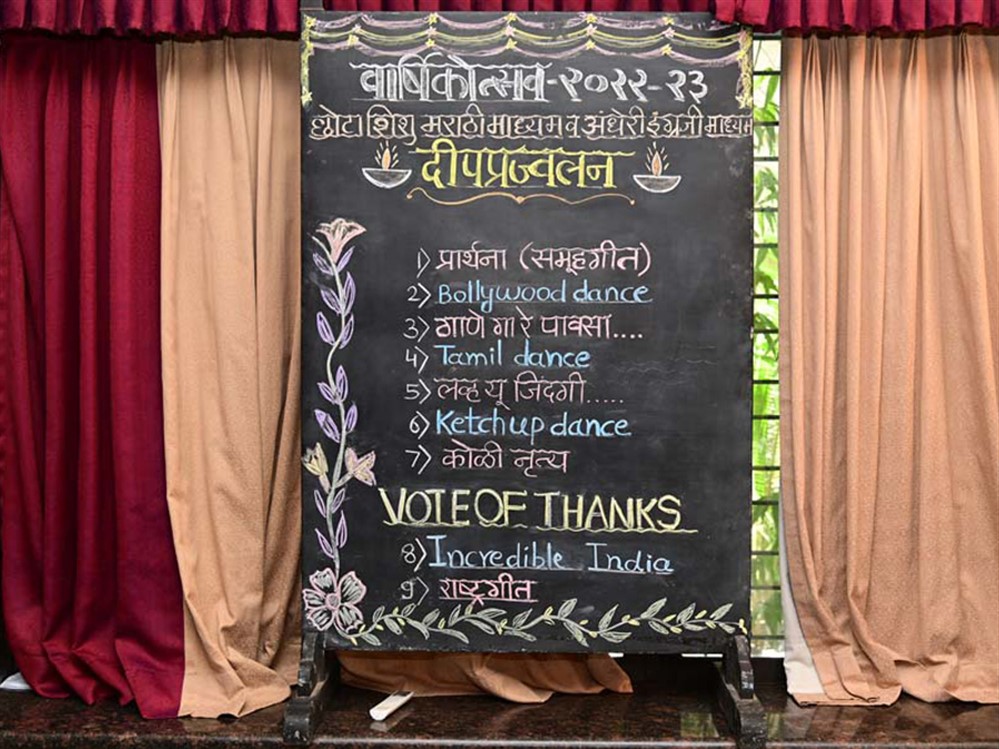 वार्षिकोत्सव-२०२२-२३
छोटा शिशु मराठी माध्यम व अंधेरी इंग्रजी माध्यम
दीपप्रज्वलन
1) प्रार्थना (समूहगीत)
2) Bollywood dance
3) गाणे गा रे पावसा....
4) Tamil dance
5) लव्ह यू जिंदगी.....
6) Ketchup dance
7) कोळी नृत्य
VOTE OF THANKS
8) Incredible India
9) राष्ट्रगीत